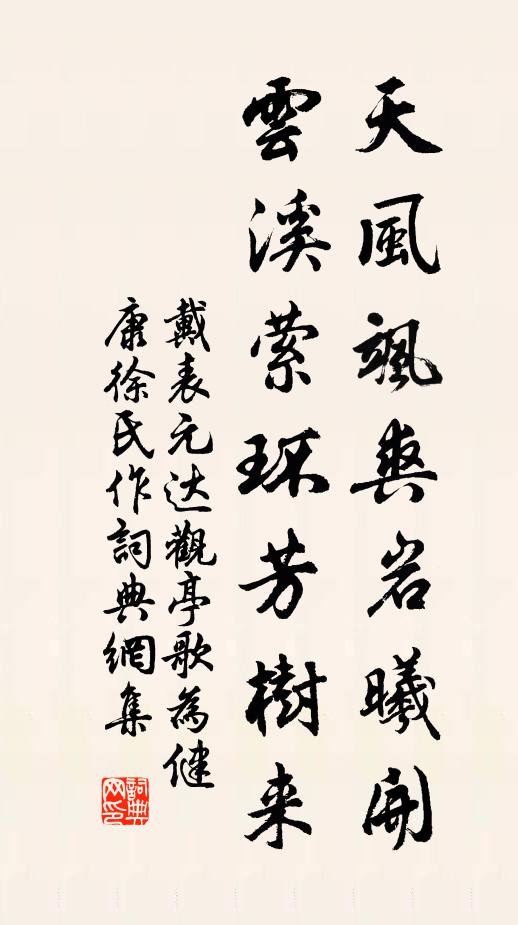 天風颯爽岩曦開
雲溪萦环芳樹来
戴表元达觀亭歌為健
康徐氏作詞典網集
詞典网印